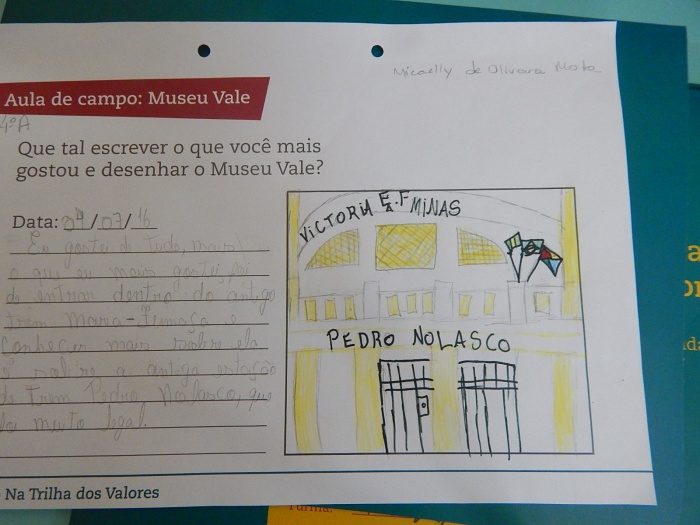 Micaelly de Oliveira Mota
Aula de campo: Museu Vale
4º A
Que tal escrever o que você mais
gostou e desenhar o Museu Vale?
Data: 07/07/16
Eu gostei de tudo, mais
o que eu mais gostei, foi
de entrar dentro do antigo
trem Maria-fumaça e
Conhecer mais sobre ela
e sobre a antiga estação
de trem Pedro Nolasco, que
foi muito legal.
VICTORIA E.F MINAS
PEDRO NOLASCO
Na Trilha dos Valores
Turma: